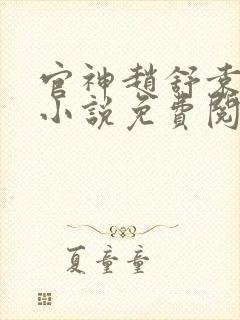 官神趙舒袁
小說免費閱
夏童童